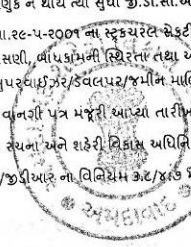 ણુક ન થાય ત્યાં સુધી જી.ડી.સી.આ
ા.૨૯-૫-૨૦૦૧ ના સ્ટ્રકચરલ સેફટી
સણી, બાંધકામની સ્થિરતા તથા અ
પરવાઈઝર/ડેવલપર/જમીન માલિ
વાનગી પત્ર મંજુરી આપ્યા તારીખ
રચના અને શહેરી વિકાસ અધિનિ
/જીડીઆર નો વિનિયમ
અમદાવાદ